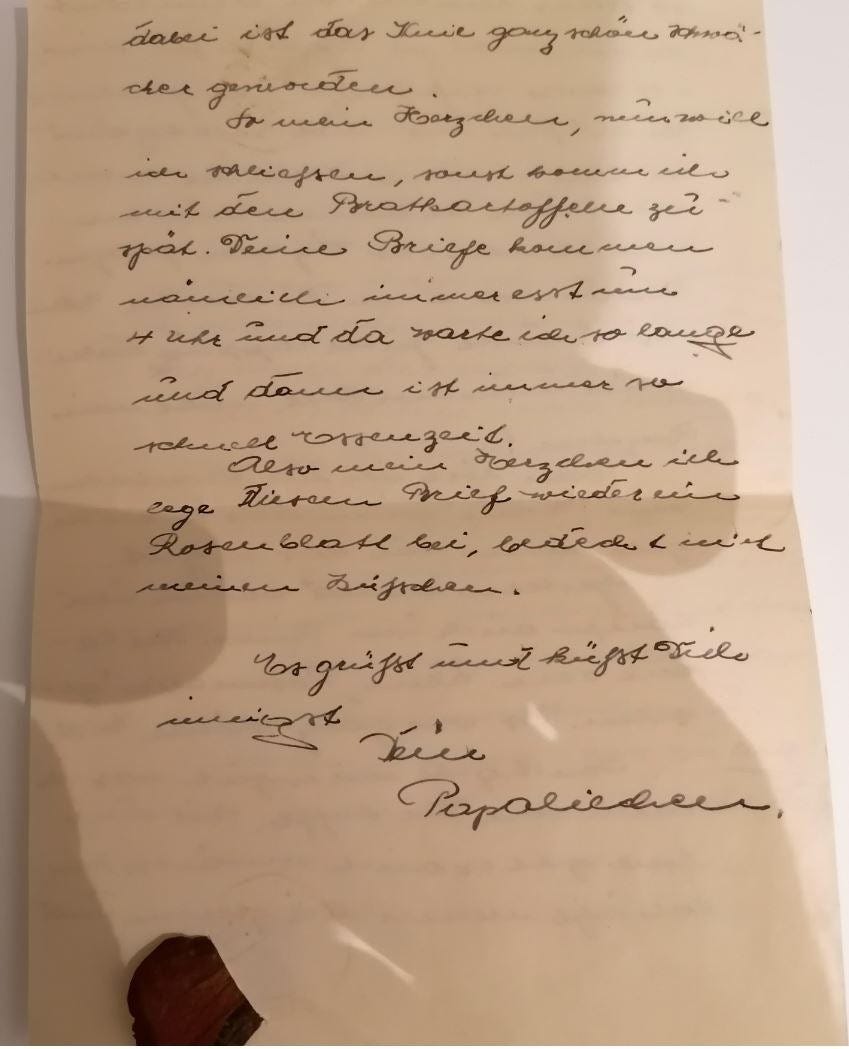 dabei ist das Knie ganz schön schwä-
cher geworden.
So mein Herzchen, nun will
ich schliessen, sonst komm ich
mit den Bratkartoffeln zu
spät. Deine Briefe kommen
nämlich immer erst um
4 Uhr und da warte ich so lange
und dann ist immer so
schnell Essenzeit.
Also mein Herzchen ich
lege diesen Brief wieder ein
Rosenblatt bei, bedeckt mit
meinen Küsschen.
Es grüßt und küßt Dich
innigst
Dein
Papalichen.